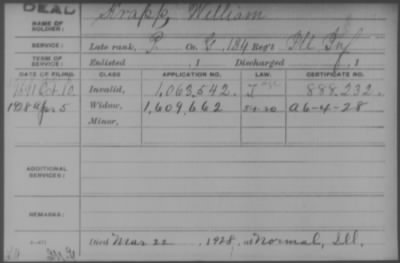 DEAD
NAME OF SOLDIER: Krapp, William
SERVICE: Late rank, P. Co. G, 134 Reg't Ill. Inf
TERM OF SERVICE: Enlisted , 1 Discharged , 1
DATE OF FILING. CLASS APPLICATION NO. LAW. CERTIFICATE NO.
1891 Oct. 10 Invalid, 1,063,542. 888,232.
1928 Apr. 5 Widow, 1,609,662 A6-4-28
Minor,
ADDITIONAL SERVICES:
REMARKS:
Died Mar 22, 1928, at Normal, Ill.